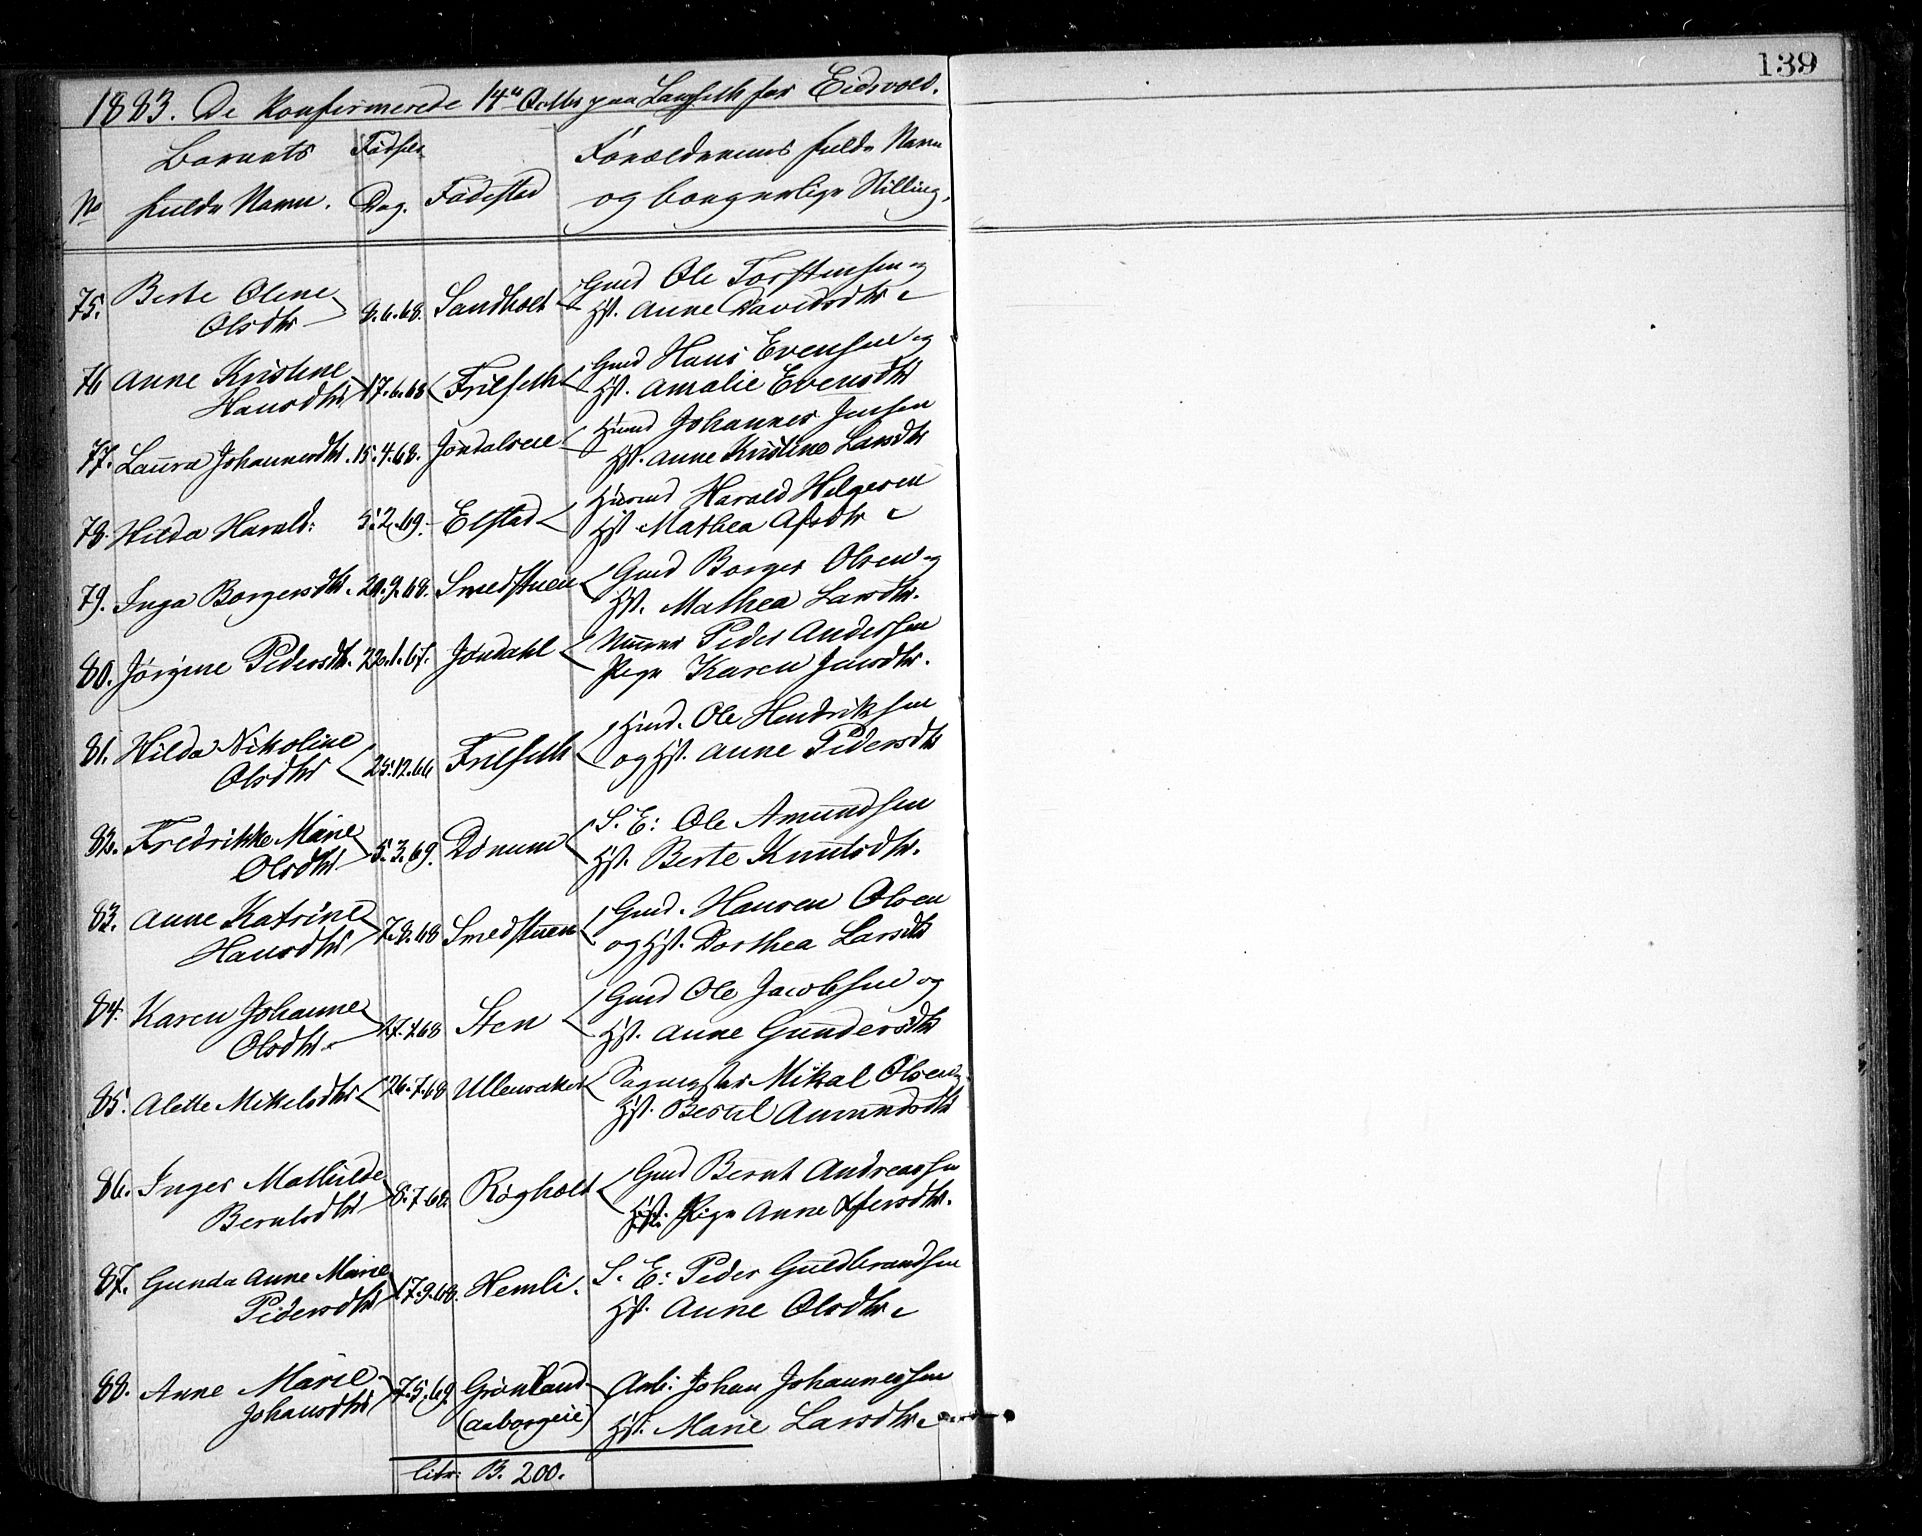 139
1883. De Konfirmerede 14de Octbr paa Langseth for Eidsvold.
Barnets Fødsels Forældrenes fulde Navn
No fulde Navn. Dag. Fødested og borgerlige Stilling.
75. Berte Oline 8.6.68. Sandholt Gmd Ole Torstensen og
Olsdtr Hst. Anne Davidsdtr
76 Anne Kristine 17.6.68 Frilseth Gmd Hans Evensen og
Hansdtr Hst. Amalie Evensdtr
77. Laura Johannesdtr. 15.4.68. Jøndalseie Hmd Johannes Jensen
Hst. Anne Kristine Larsdtr
78. Hilda Harald: 5.2.69. Elstad Harald Helgesen
Hst. Mathea
79. Inga Borgersdtr. 20.9.68. Smedstuen Gmd Borger Olsen og
Hst. Mathea Larsdtr.
80. Jørgine Pedersdtr. 22.1.67. Jøndahl Peder Andersen
Pige Karen Jensdtr.
81. Hilda Nikoline 25.12.66 Frilseth Hmd. Ole Hendriksen
Olsdtr og Hst. Anne Pedersdtr
82. Fredrikke Marie 5.3.69. Dønnum S. E: Ole Amundsen
Olsdtr Hst. Berte Knutsdtr.
83. Anne Katrine 7.8.68 Smedstuen Gmd. Hansen Olsen
Hansdtr og Hst. Dorthea Larsdtr
84. Karen Johanne 27.7.68 Sten Gmd Ole Jacobsen og
Olsdtr Hst. Anne Gundersdtr
85. Alette Mikelsdtr 26.7.68 Ullensaker Sagmester Mikal Olsen og
Hst. Amundsdtr
86. Inger Mathilde 8.7.68. Røgholt Gmd Bernt Andreassen
Berntsdtr Hst. Pige Anne
87. Gunda Anne Marie 17.9.68. Hemli. S. E: Peder Guldbrandsen
Pedersdtr Hst. Anne Olsdtr
88. Anne Marie 7.5.69. Grønland Arb: Johan Johannessen
Johansdtr Hst. Marie Larsdtr
litr: B. 200.